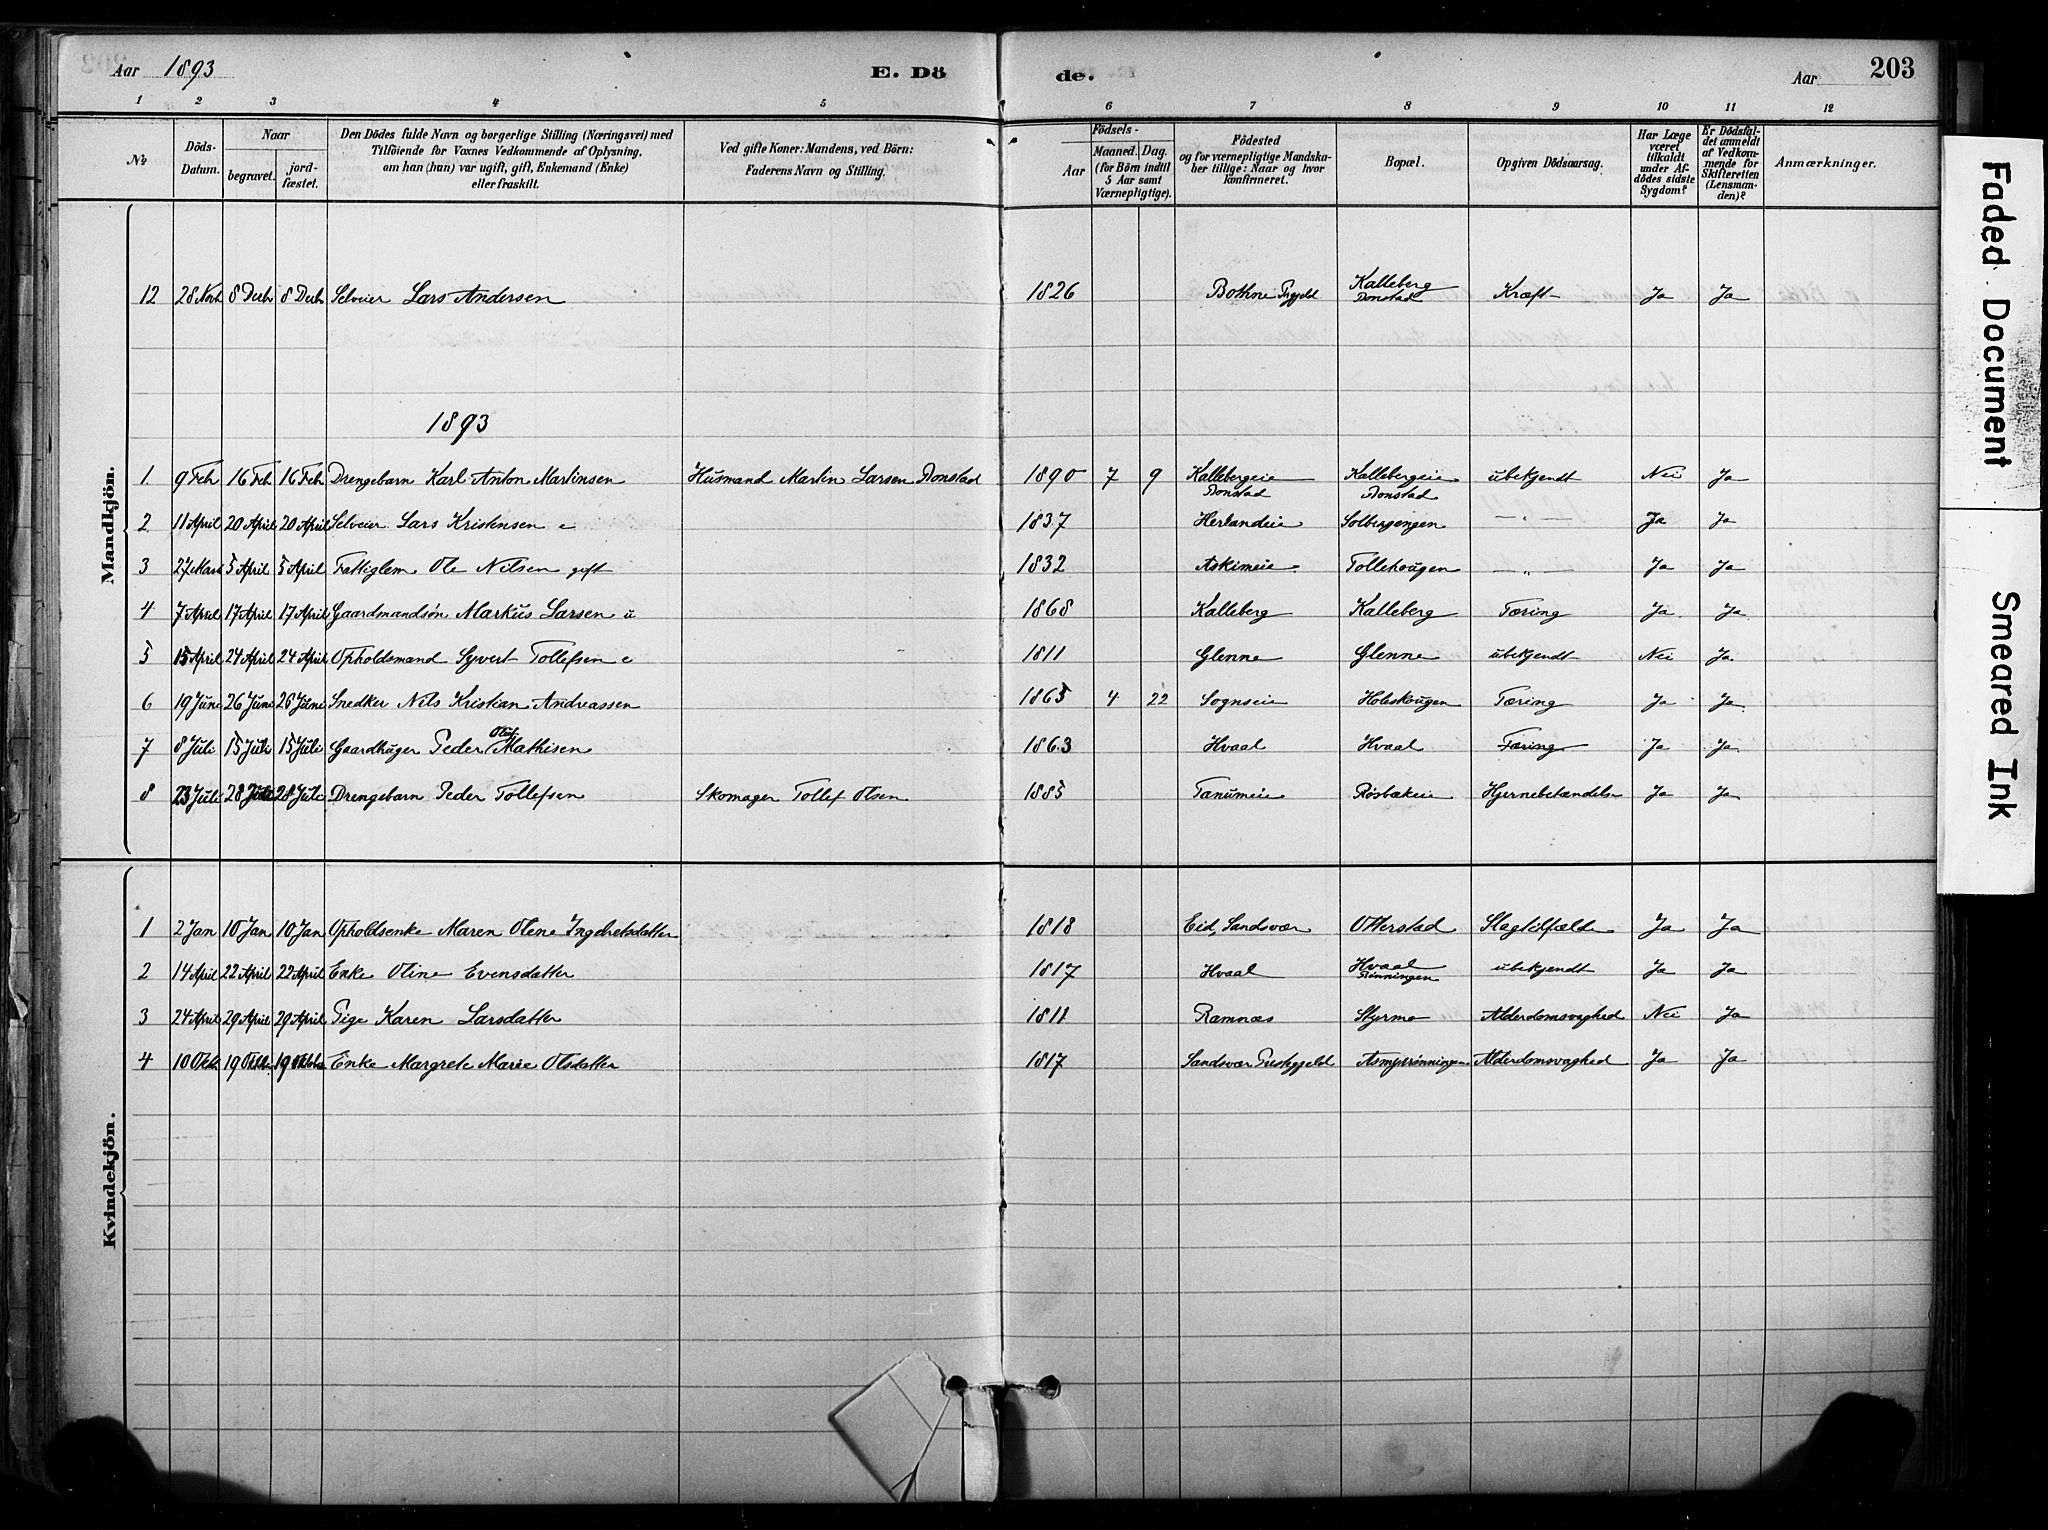 Aar 1893
E. Dö
de.
Aar
203
1 2 3 4 5 6 7 8 9 10 11 12
No
Döds-Datum.
Naar
begravet.
jord-fæstet.
Den Dödes fulde Navn og borgerlige Stilling (Næringsvei) med
Tilföiende for Voxnes Vedkommende af Oplysning,
om han (hun) var ugift, gift, Enkemand (Enke)
eller fraskilt.
Ved gifte Koner: Mandens, ved Börn:
Faderens Navn og Stilling.
Födsels-
Aar
Maaned. Dag.
(for Börn indtil
5 Aar samt
Værnepligtige).
Födested
og for værnepligtige Mandska-
ber tillige: Naar og hvor
konfirmeret.
Bopæl.
Opgiven Dödsaarsag.
Har Læge
været
tilkaldt
under Af-
dödes sidste
Sygdom?
Er Dödsfal-
det anmeldt
af Vedkom-
mende for
Skifteretten
(Lensman-
den)?
Anmærkninger.
Mandkjön.
12 28 Novb 8 Decb 8 Decb Selveier Lars Andersen 1826 Bothne Prgjeld Kalleberg Ronstad Kræft Ja Ja
1893
1 9 Feb 16 Feb 16 Feb Drengebarn Karl Anton Martinsen Husmand Martin Larsen Ronstad 1890 7 9 Kallebergeie Ronstad Kallebergeie Ronstad ubekjendt Nei Ja
2 11 April 20 April 20 April Selveier Lars Kristensen e 1837 Herlandeie Solbergengen — „ — Ja Ja
3 27 Mars 5 April 5 April Fattiglem Ole Nilsen gift 1832 Askimeie Tollehougen — „ — Ja Ja
4 7 April 17 April 17 April Gaardmandsön Markus Larsen u 1868 Kalleberg Kalleberg Tæring Ja Ja
5 15 April 24 April 24 April Opholdsmand Syvert Tollefsen e 1811 Glenne Glenne ubekjendt Nei Ja
6 19 Juni 26 Juni 26 Juni Snedker Nils Kristian Andreassen 1865 4 22 Sognseie Holeskougen Tæring Ja Ja
7 8 Juli 15 Juli 15 Juli Gaardbruger Peder Olaf Mathisen 1863 Hvaal Hvaal Tæring Ja Ja
8 23 Juli 28 Juli 28 Juli Drengebarn Peder Tollefsen Skomager Tollef Olsen 1885 Tanumeie Rösbækeie Hjernebetændelse Ja Ja
Kvindekjön.
1 2 Jan 10 Jan 10 Jan Opholdsenke Maren Olene Ingebretsdatter 1818 Eid, Sandsvær Otterstad Slagtilfælde Ja Ja
2 14 April 22 April 22 April Enke Oline Evensdatter 1817 Hvaal Hvaal Rönningen ubekjendt Ja Ja
3 24 April 29 April 29 April Pige Karen Larsdatter 1811 Ramnæs Styrmo Alderdomsvaghed Nei Ja
4 10 Oktb 19 Oktbr 19 Oktbr Enke Margrete Marie Olsdatter 1817 Sandsvær Prestegjeld Alderdomsvaghed Ja Ja
Faded Document
Smeared Ink